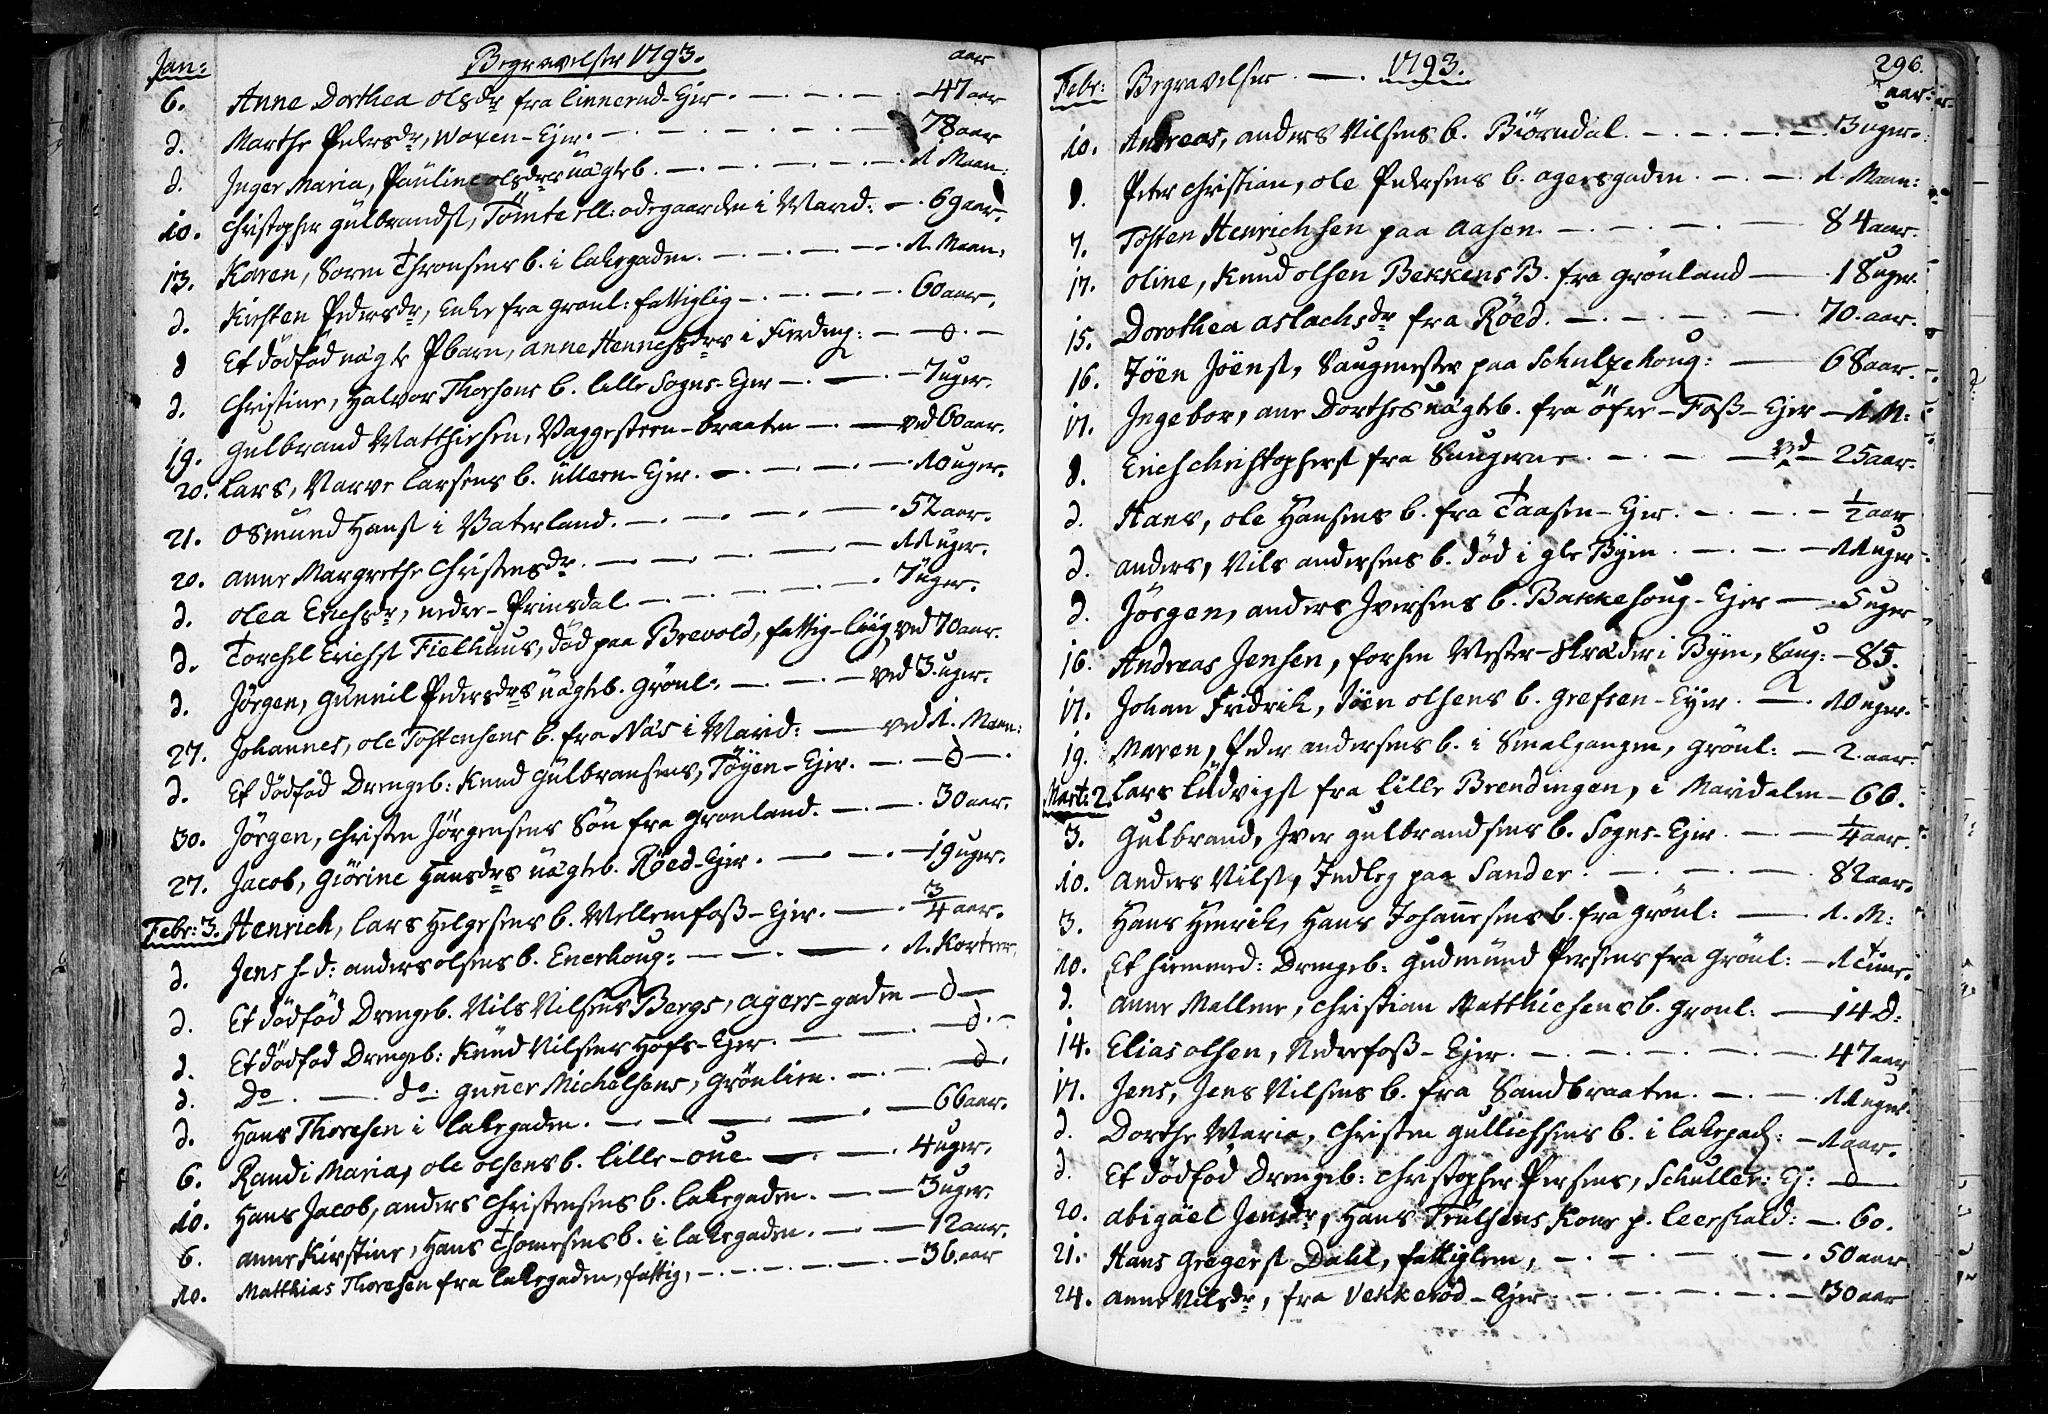 Jan: Begravelser 1793. aar
6. Anne Dorthea olsdr fra linnerud-Ejer. — 47 aar
d. Marthe Pedersdr, Woxen-Ejer. — 78 aar
d. Inger Maria, Pauline olsdrs uægteb. — 1. Maan:
10. Christopher Gulbrandst, Tömte ell: odegaarden i Marid: — 69 aar.
13. Karen, Soren Thronsens b. i lakegaden. — 1. Maan.
d. Kirsten Pedersdr, Enke fra Gronl: fattiglig — 60 aar.
d Et dödföd uægte Pbarn, anne Hennesdrs i Fierding: — d. —
d. Christine, Halvor Thorsens b. lille Sogns-Ejer — 7 uger.
19. Gulbrand Matthiesen, Vaggesteen-braaten — ved 60 aar.
20. Lars, Narve Larsens b. üllern-Ejer. — 10 uger.
21. Osmund Hanst i Vaterland. — 52 aar.
20. Anne Margrethe Christensdr. — 11 uger.
d. olea Erichsdr, nedre-Prinsdal. — 7 uger.
d. Torchil Erichst Fielhuus, död paa Brevold, fattig-liig, ved 70 aar.
d. Jörgen, Gunnil Pedersdrs uägteb. Grönl: — ved 3. uger.
27. Johannes, ole Tostensens b. fra Näs i Marid: — ved 1. Maan:
d. Et dödföd Drengeb: Knud Gulbransens, Töyen-Ejer. — d — .
30. Jörgen, Christen Jörgensens Sön fra Gronland. — 30 aar.
27. Jacob, Giörine Hansdrs uägteb. Röed-Ejer. — 19 uger.
Febr: 3. Henrich, Lars Helgesens b. Mellemfoss-Ejer. — 3/4 aar.
d. Jens h-d: anders olsens b. Enerhoug: — 1. Korteer.
d. Et dödföd Drengeb. Nils Nilsens Bergs, agers-gaden — d —
d. Et dödföd Drengeb: Knud Nilsens Hofs-Ejer. — d. —
d. Do — do: Gunner Michelsens, Grönlien. — d.
d. Hans Thoresen i lakegaden. — 66 aar.
6. Randi Maria, ole olsens b. lille-oue — 4 uger.
10. Hans Jacob, anders Christensens b. lakegaden. — 3 uger.
6. Anne Kirstine, Hans Thomesens b. i lakegaden. — 12 aar.
10. Matthias Thoresen fra lakegaden, fattig, — 36. aar
Febr: Begravelser. — 1793. 296. aar:
10. Andreas, anders Nilsens b. Biörndal. — 3 uger.
d. Peter Christian, ole Pedersens b. agersgaden. — 1. Maan:
7. Tosten Henrichsen paa Aasen. — 84 aar.
17. Oline, Knud olsen Bekkens B. fra Grönland — 18 uger.
15. Dorothea aslachsdr fra Röed. — 70. aar.
16. Jöen Jöenst, Saugmester paa Schulzehoug: — 68 aar.
17. Ingebor, ane Dorthes uägteb. fra öfre-Foss-Ejer — 1 M:
d. Erich Christopherst fra Saugerne. — ved — 25 aar.
d. Hans, ole Hansens b. fra Taasen-Ejer. — 1/2 aar
d. anders, Nils andersens b. död i gle Byen. — 11 uger
d. Jörgen, anders Iversens b. Bakkehoug-Ejer — 5 uger
16. Andreas Jensen, forhen Mester-Skräder i Byen, Saug: — 85.
17. Johan Fridrik, Jöen olsens b. Grefsen-Ejer. — 10 uger.
19. Maren, Peder andersens b. i Smalgangen, Grönl: — 2. aar.
Mart: 2. Lars Ludvigst fra lille Brendingen, i Maridalen — 60.
3. Gulbrand, Iver Gulbrandsens b. Sogns-Ejer. — 1/4 aar.
10. Anders Nilst, Indleg paa Sander. — 82 aar.
3. Hans Henrik, Hans Johannesens b. fra Grönl: — 1. M:
10. Et hiemmed: Drengeb: Gudmund Persens fra Grönl: — 1 Time.
d. Anne Mallene, Christian Matthiesens b. Gronl: — 14 D:
14. Elias olsen, Nedrefoss-Ejer. — 47 aar
17. Jens, Jens Nilsens b. fra Sandbraaten. — 11 uger
d. Dorthe Maria, Christen Gullichsens b. i lakegad: — 1 aar.
d. Et dödföd Drengeb: Christopher Persens, Schuller: Ej: — d —
20. Abigäel Jensdr, Hans Trulsens Kone p. leerfald: — 60.
21. Hans Gregerst Dahl, fattiglem, — 50 aar
24. Anne Nilsdr, fra Vekkeröd-Ejer. — 30 aar